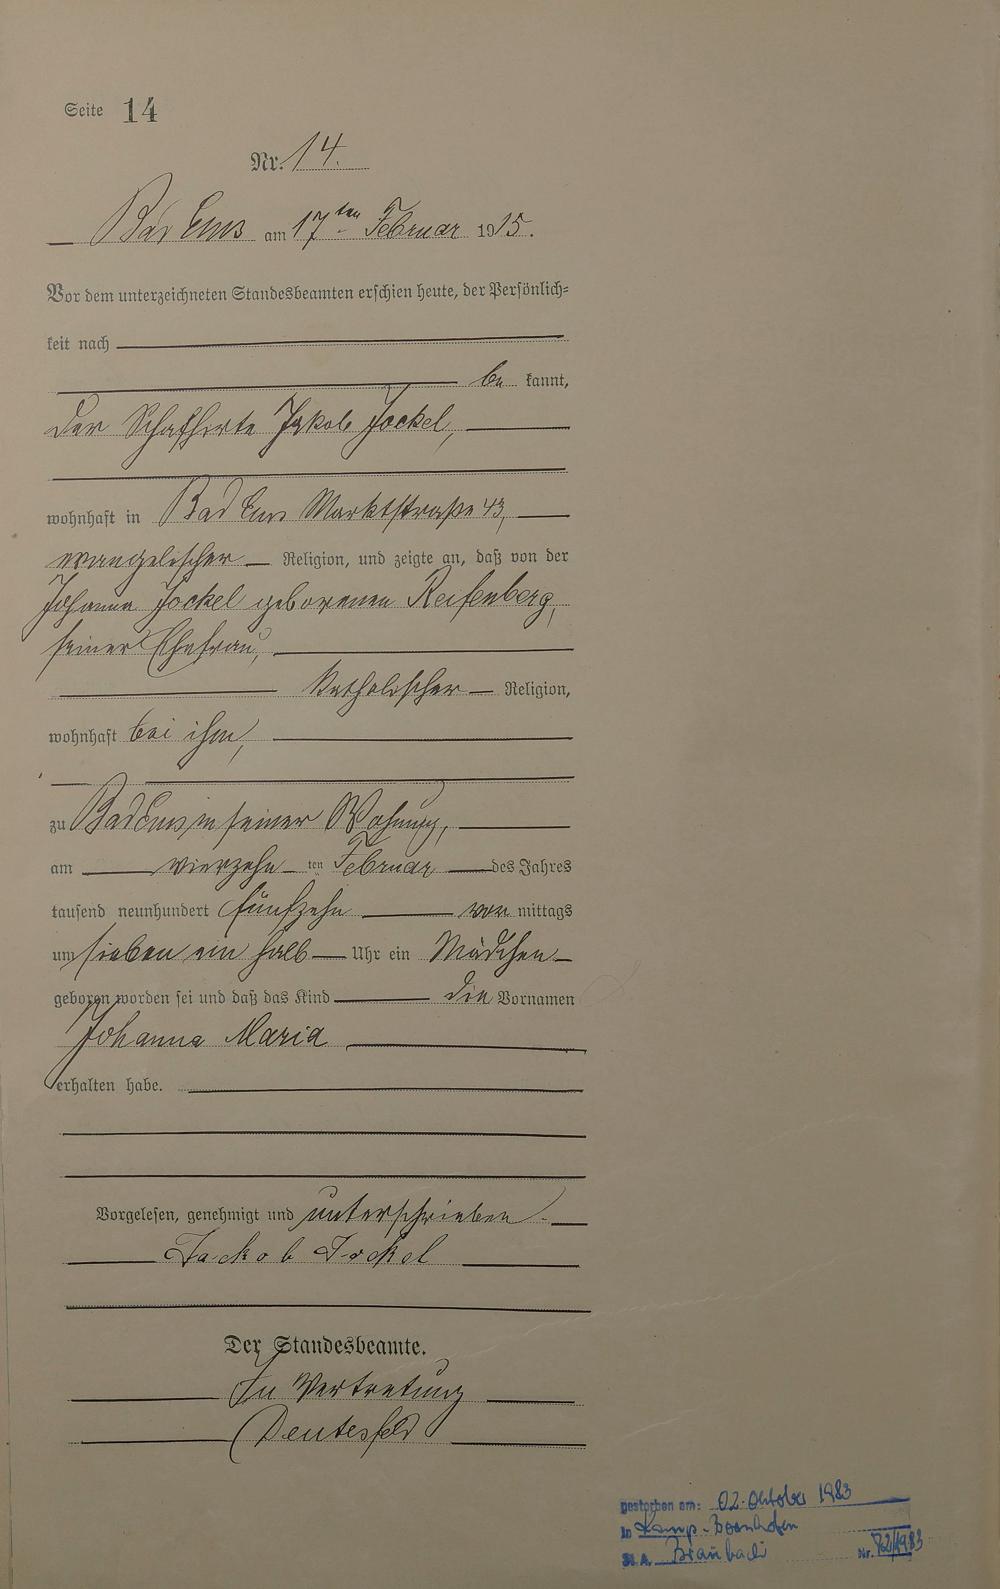 Seite 14
Nr. 14.
Bad Ems am 17ten Februar 1915.
Vor dem unterzeichneten Standesbeamten erschien heute, der Persönlich=
keit nach
be kannt,
der Schafhirte Jakob Jockel,
wohnhaft in Bad Ems Marktstraße 43,
evangelischer Religion, und zeigte an, daß von der
Johanna Jockel geborenen Reifenberg,
seiner Ehefrau,
katholischer Religion,
wohnhaft bei ihm,
zu Bad Ems in seiner Wohnung,
am vierzehn ten Februar des Jahres
tausend neunhundert fünfzehn vor mittags
um sieben ein halb Uhr ein Mädchen
geboren worden sei und daß das Kind die Vornamen
Johanna Maria
erhalten habe.
Vorgelesen, genehmigt und unterschrieben
Jackob Jockel
Der Standesbeamte.
In Vertretung
gestorben am: 02. Oktober 1983
in Kamp-Bornhofen
St.A. Braubach Nr. 72/1983